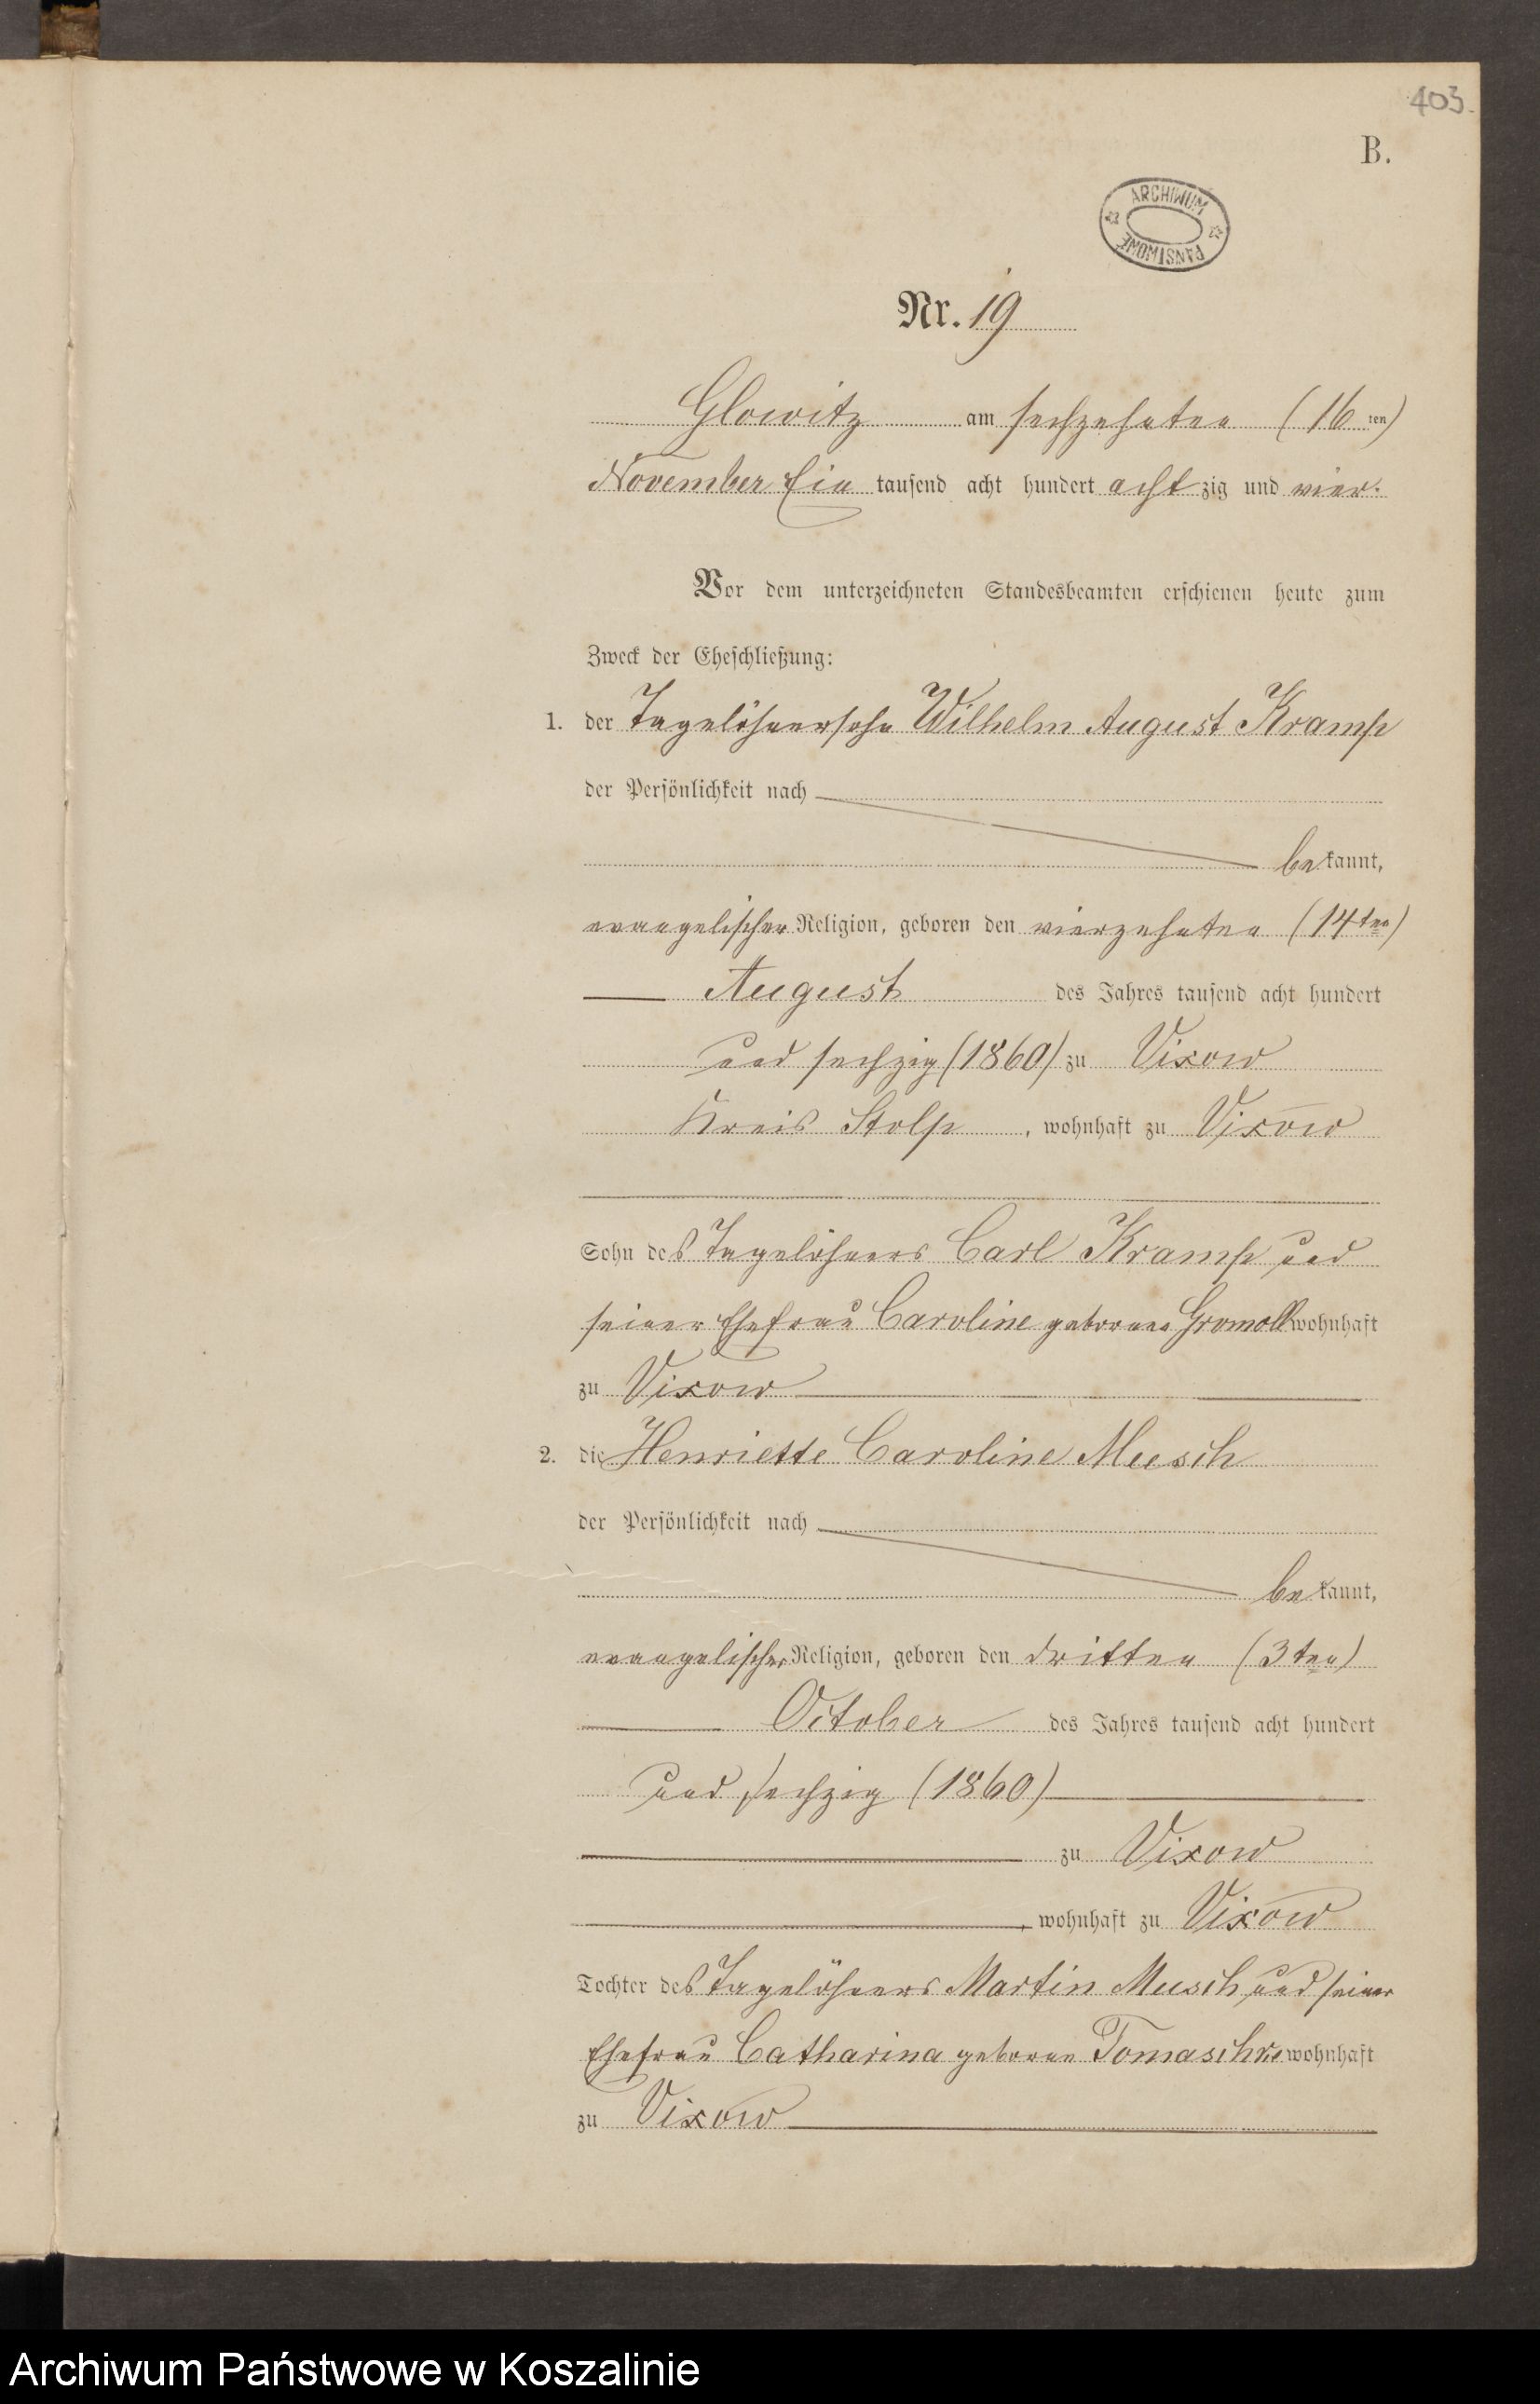 403.
B.
ARCHIWUM
PAŃSTWOWE
Nr. 19
Glowitz am sechzehnten (16ten)
November Ein tausend acht hundert achtzig und vier.
Vor dem unterzeichneten Standesbeamten erschienen heute zum
Zweck der Eheschließung:
1. der Tagelöhnersohn Wilhelm August Kramp
der Persönlichkeit nach
bekannt,
evangelischer Religion, geboren den vierzehnten (14ten)
August des Jahres tausend acht hundert
und sechzig (1860) zu Vixow
Kreis Stolp, wohnhaft zu Vixow
Sohn des Tagelöhners Carl Kramp und
seiner Ehefrau Caroline geborene Gromoll wohnhaft
zu Vixow
2. die Henriette Caroline Musch
der Persönlichkeit nach
bekannt,
evangelischer Religion, geboren den dritten (3ten)
October des Jahres tausend acht hundert
und sechzig (1860)
zu Vixow
, wohnhaft zu Vixow
Tochter des Tagelöhners Martin Musch und seiner
Ehefrau Catharina geborene Tomaschke wohnhaft
zu Vixow
Archiwum Państwowe w Koszalinie